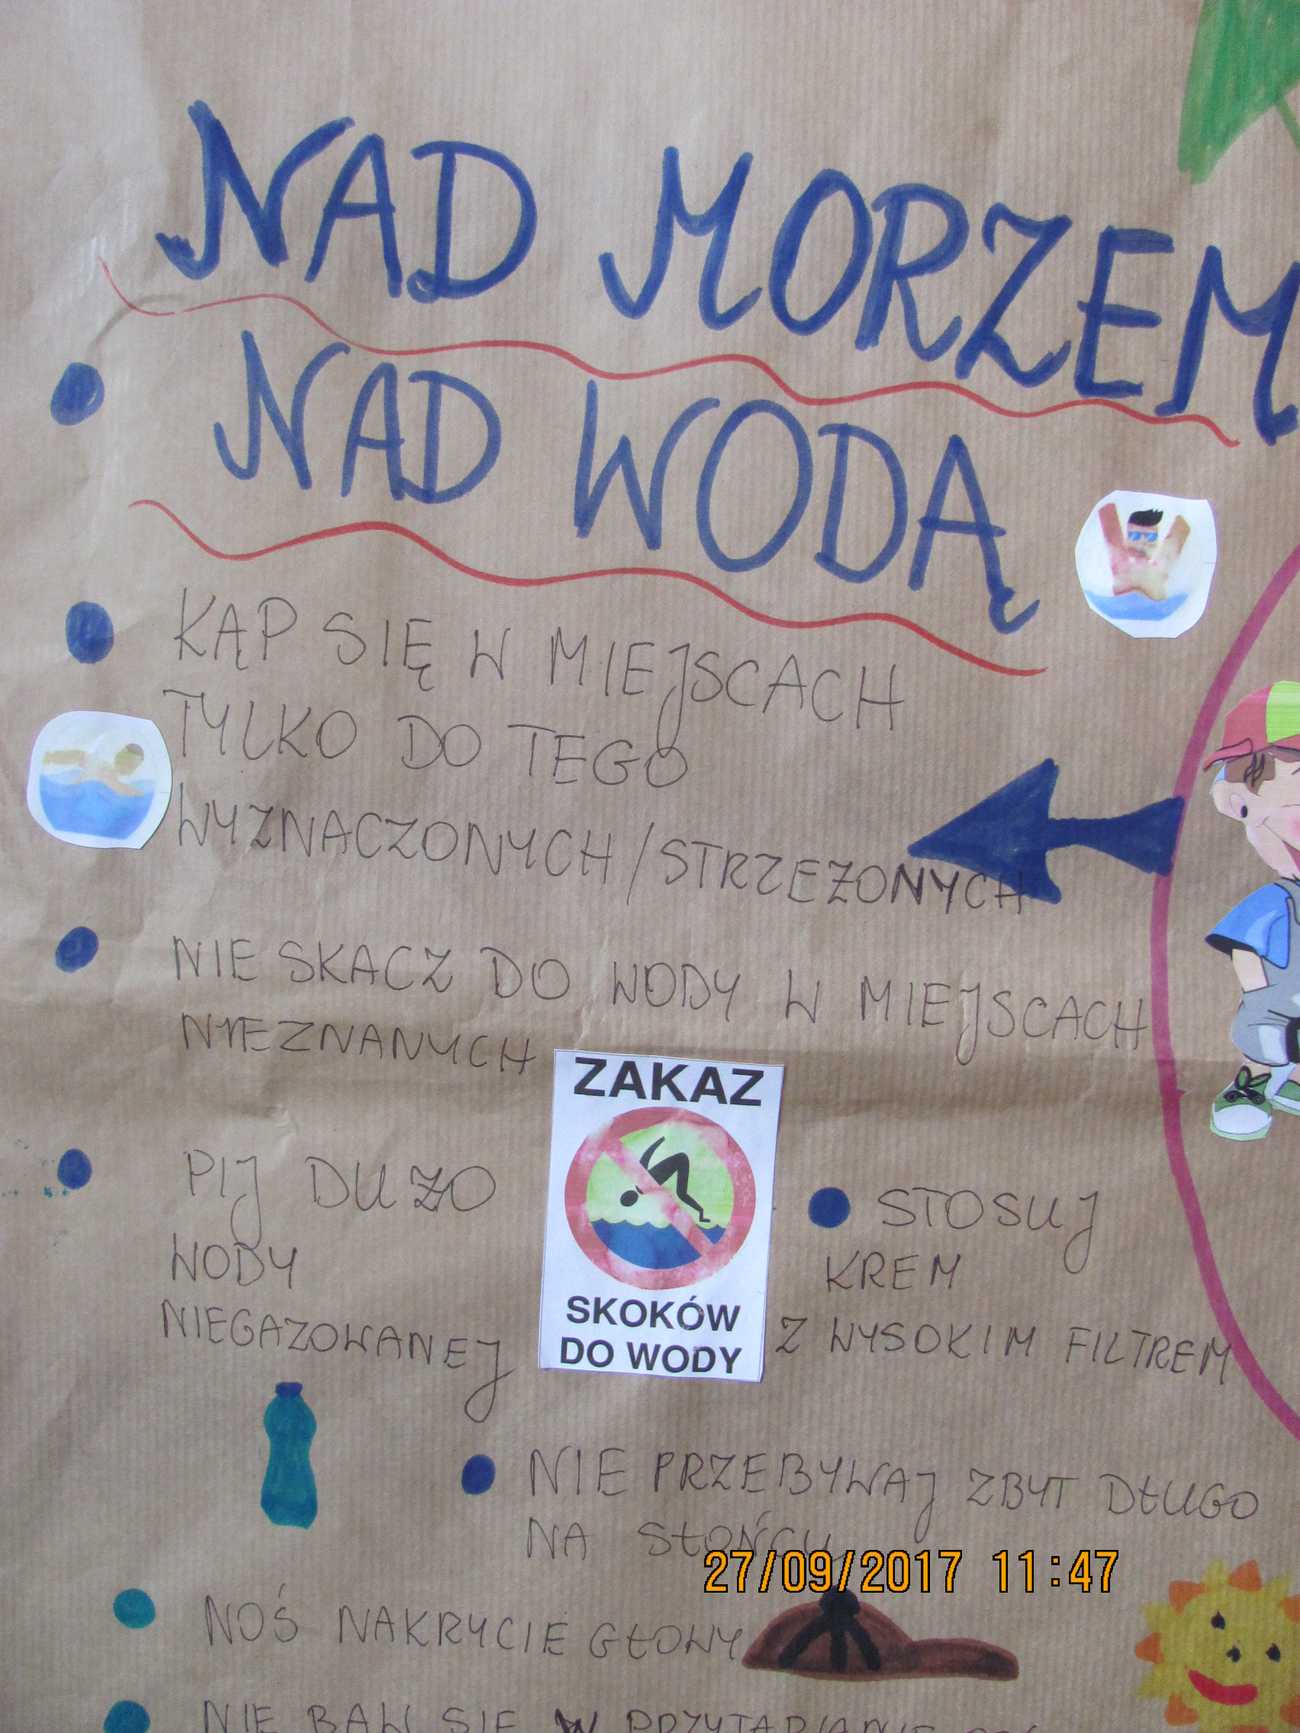 NAD MORZEM
NAD WODĄ
KĄP SIĘ W MIEJSCACH
TYLKO DO TEGO
WYZNACZONYCH/STRZEŻONYCH
NIE SKACZ DO WODY W MIEJSCACH
NIEZNANYCH
ZAKAZ
SKOKÓW
DO WODY
PIJ DUŻO
WODY
NIEGAZOWANEJ
STOSUJ
KREM
Z WYSOKIM FILTREM
NIE PRZEBYWAJ ZBYT DŁUGO
NA SŁOŃCU
27/09/2017 11:47
NOŚ NAKRYCIE GŁOWY
NIE BAW SIĘ W PRZYTAPIANIE